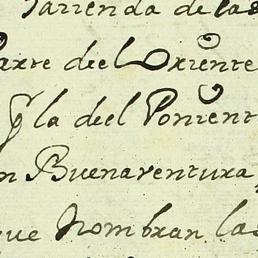 Jarrienda de las
parte del Oriente
y la del Ponient
n Buenaventura
que Nombran las